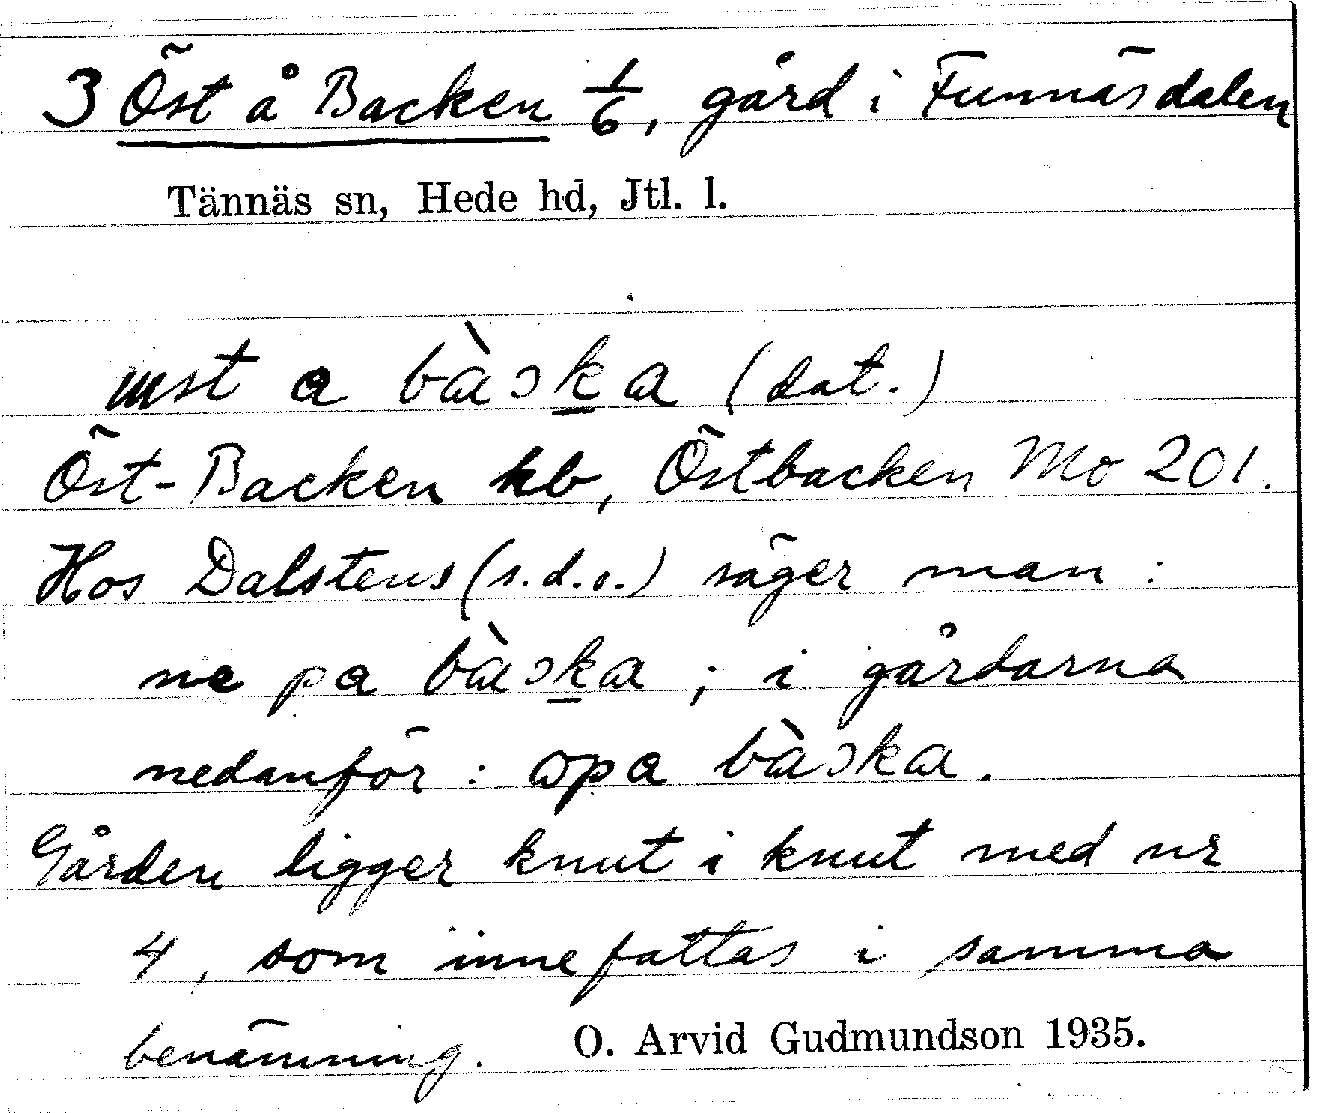 3 Öst å Backen 1/6, gård i Funnäsdalen
Tännäs sn, Hede hd, Jtl. l.
a bàɔka (dat.)
Öst-Backen kb, Östbacken Mo 201.
Hos Dalstens (s.d.o.) säger man:
ne pa bàɔka ; i gårdarna
nedanför: opa bàɔka.
Gården ligger knut i knut med nr
4, som innefattas i samma
benämning. O. Arvid Gudmundson 1935.